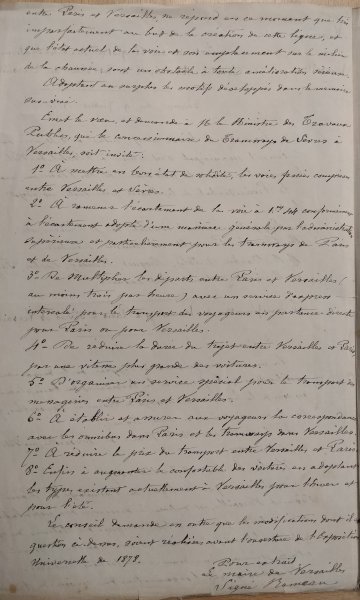 entre Paris et Versailles, ne répond en ce moment que très
imparfaitement au but de la création de cette ligne, et
que l'état actuel de la voie et son emplacement sur le milieu
de la chaussée, sont un obstacle à toute amélioration sérieuse.
Adoptant au surplus les motifs développés dans le mémoire
sus visé.
Emet le vœu, et demande à M. le Ministre des Travaux
Publics, que le concessionnaire du Tramways de Sèvres à
Versailles, soit invité :
1° À mettre en bon état de solidité, les voies ferrées comprises
entre Versailles et Sèvres.
2° À ramener l'écartement de la voie à 1m 44 conformément
à l'écartement adopté d'une manière générale par l'administration
supérieure et particulièrement pour les tramways de Paris
et de Versailles.
3° De Multiplier les départs entre Paris et Versailles (
au moins trois par heure) avec un service d'express
pour le transport des voyageurs en partance directe
pour Paris ou pour Versailles.
4° De réduire la durée du trajet entre Versailles et Paris
par une vitesse plus grande des voitures.
5° D'organiser un service spécial pour le transport des
messageries entre Paris et Versailles.
6° À établir et assurer aux voyageurs la correspondance
avec les omnibus dans Paris et les tramways dans Versailles.
7° À réduire le prix du transport entre Versailles et Paris.
8° Enfin à augmenter le confortable des voitures en adoptant
les types existant actuellement à Versailles pour l'hiver et
pour l'été.
Le conseil demande en outre que les modifications dont il
question ci-dessus, soient réalisées avant l'ouverture de l'Exposition
Universelle de 1878.
Pour extrait
Le maire de Versailles
Signé Rameau